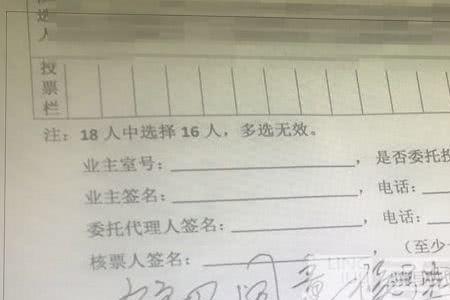 选
人
投
票
栏
注：18人中选择16人，多选无效。
业主室号：，是否委托投
业主签名：，电话：
委托代理人签名：，电话：
核票人签名：，（至少